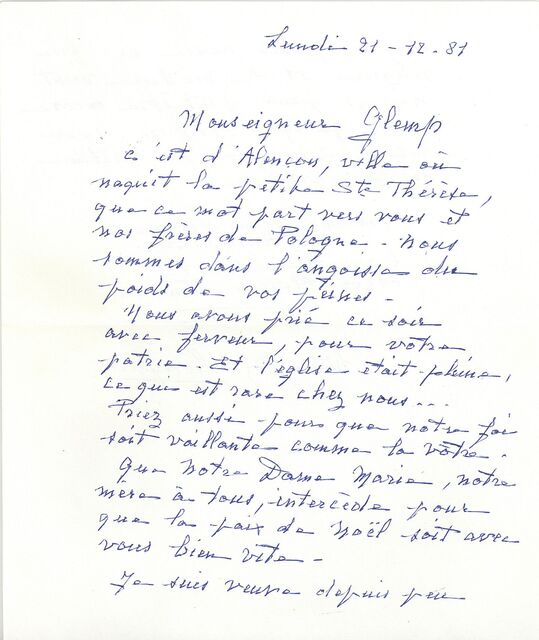 Lundi 21-12-81
Monseigneur Glemp
c'est d'Alençon, ville où
naquit la petite Ste Thérèse,
que ce mot part vers vous et
nos frères de Pologne - Nous
sommes dans l'angoisse du
poids de vos peines -
Nous avons prié ce soir
avec ferveur, pour votre
patrie. Et l'église était pleine,
ce qui est rare chez nous...
Priez aussi pour que notre foi
soit vaillante comme la vôtre.
Que Notre Dame Marie, notre
mère à tous, intercède pour
que la paix de Noël soit avec
vous bien vite -
Je suis veuve depuis peu